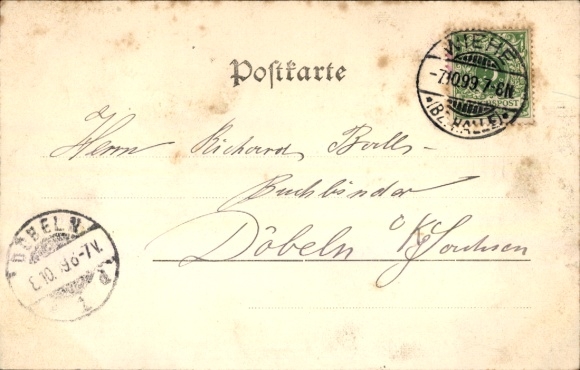 Postkarte
WIEHE
-7.10.99. 7-8N
*(BZ. HALLE)*
5
REICHSPOST
Herrn Richard Balls-
Buchbinder
Döbeln i/Kg. Sachsen
DÖBELN
8.10. 99. 6-7V.